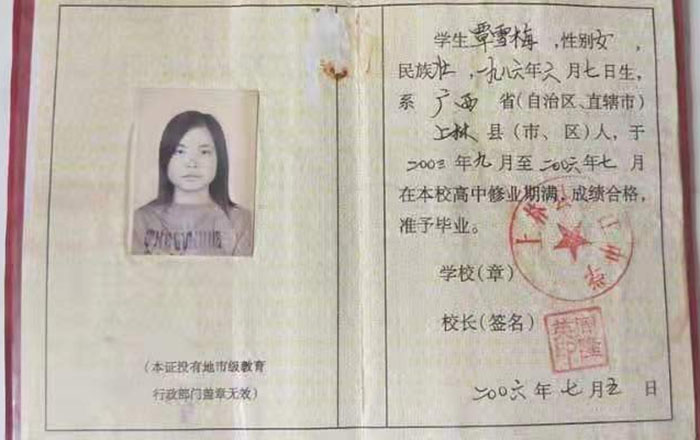 (本证没有地市级教育
行政部门盖章无效)
学生覃雪梅,性别女,
民族壮,一九八六年六月七日生,
系广西省(自治区、直辖市)
上林县(市、区)人,于
二00三年九月至二00六年七月
在本校高中修业期满,成绩合格,
准予毕业。
学校(章)
校长(签名)
二00六年七月五日